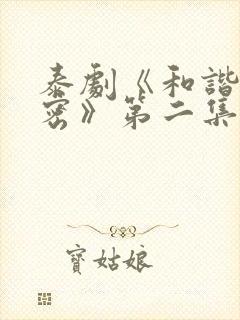 泰劇《和諧
密》第二集
寶姑娘